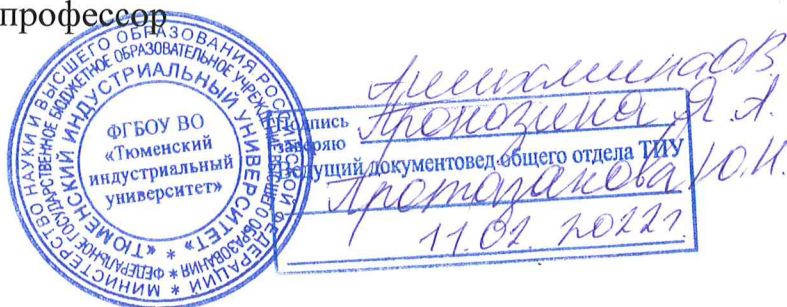 профессор
МИНИСТЕРСТВО НАУКИ И ВЫСШЕГО ОБРАЗОВАНИЯ РОССИЙСКОЙ ФЕДЕРАЦИИ *
ФЕДЕРАЛЬНОЕ ГОСУДАРСТВЕННОЕ БЮДЖЕТНОЕ ОБРАЗОВАТЕЛЬНОЕ УЧРЕЖДЕНИЕ ВЫСШЕГО ОБРАЗОВАНИЯ *
«ТЮМЕНСКИЙ ИНДУСТРИАЛЬНЫЙ УНИВЕРСИТЕТ» *
ФГБОУ ВО
«Тюменский
индустриальный
университет»
Подпись Пронозина Я.А.
заверяю
Ведущий документовед общего отдела ТИУ
Протазанова Ю.Н.
11.02.2022г.